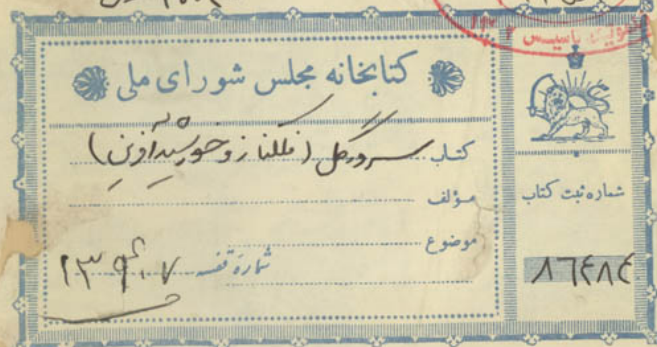 کتابخانه مجلس شورای ملی
کتاب سرو و گل (فلکناز و خورشیدآفرین)
مؤلف
موضوع
شمارهٔ قفسه ۱۳۹۲۰۷
شماره ثبت کتاب
۸۶۴۸۴
تأسیس